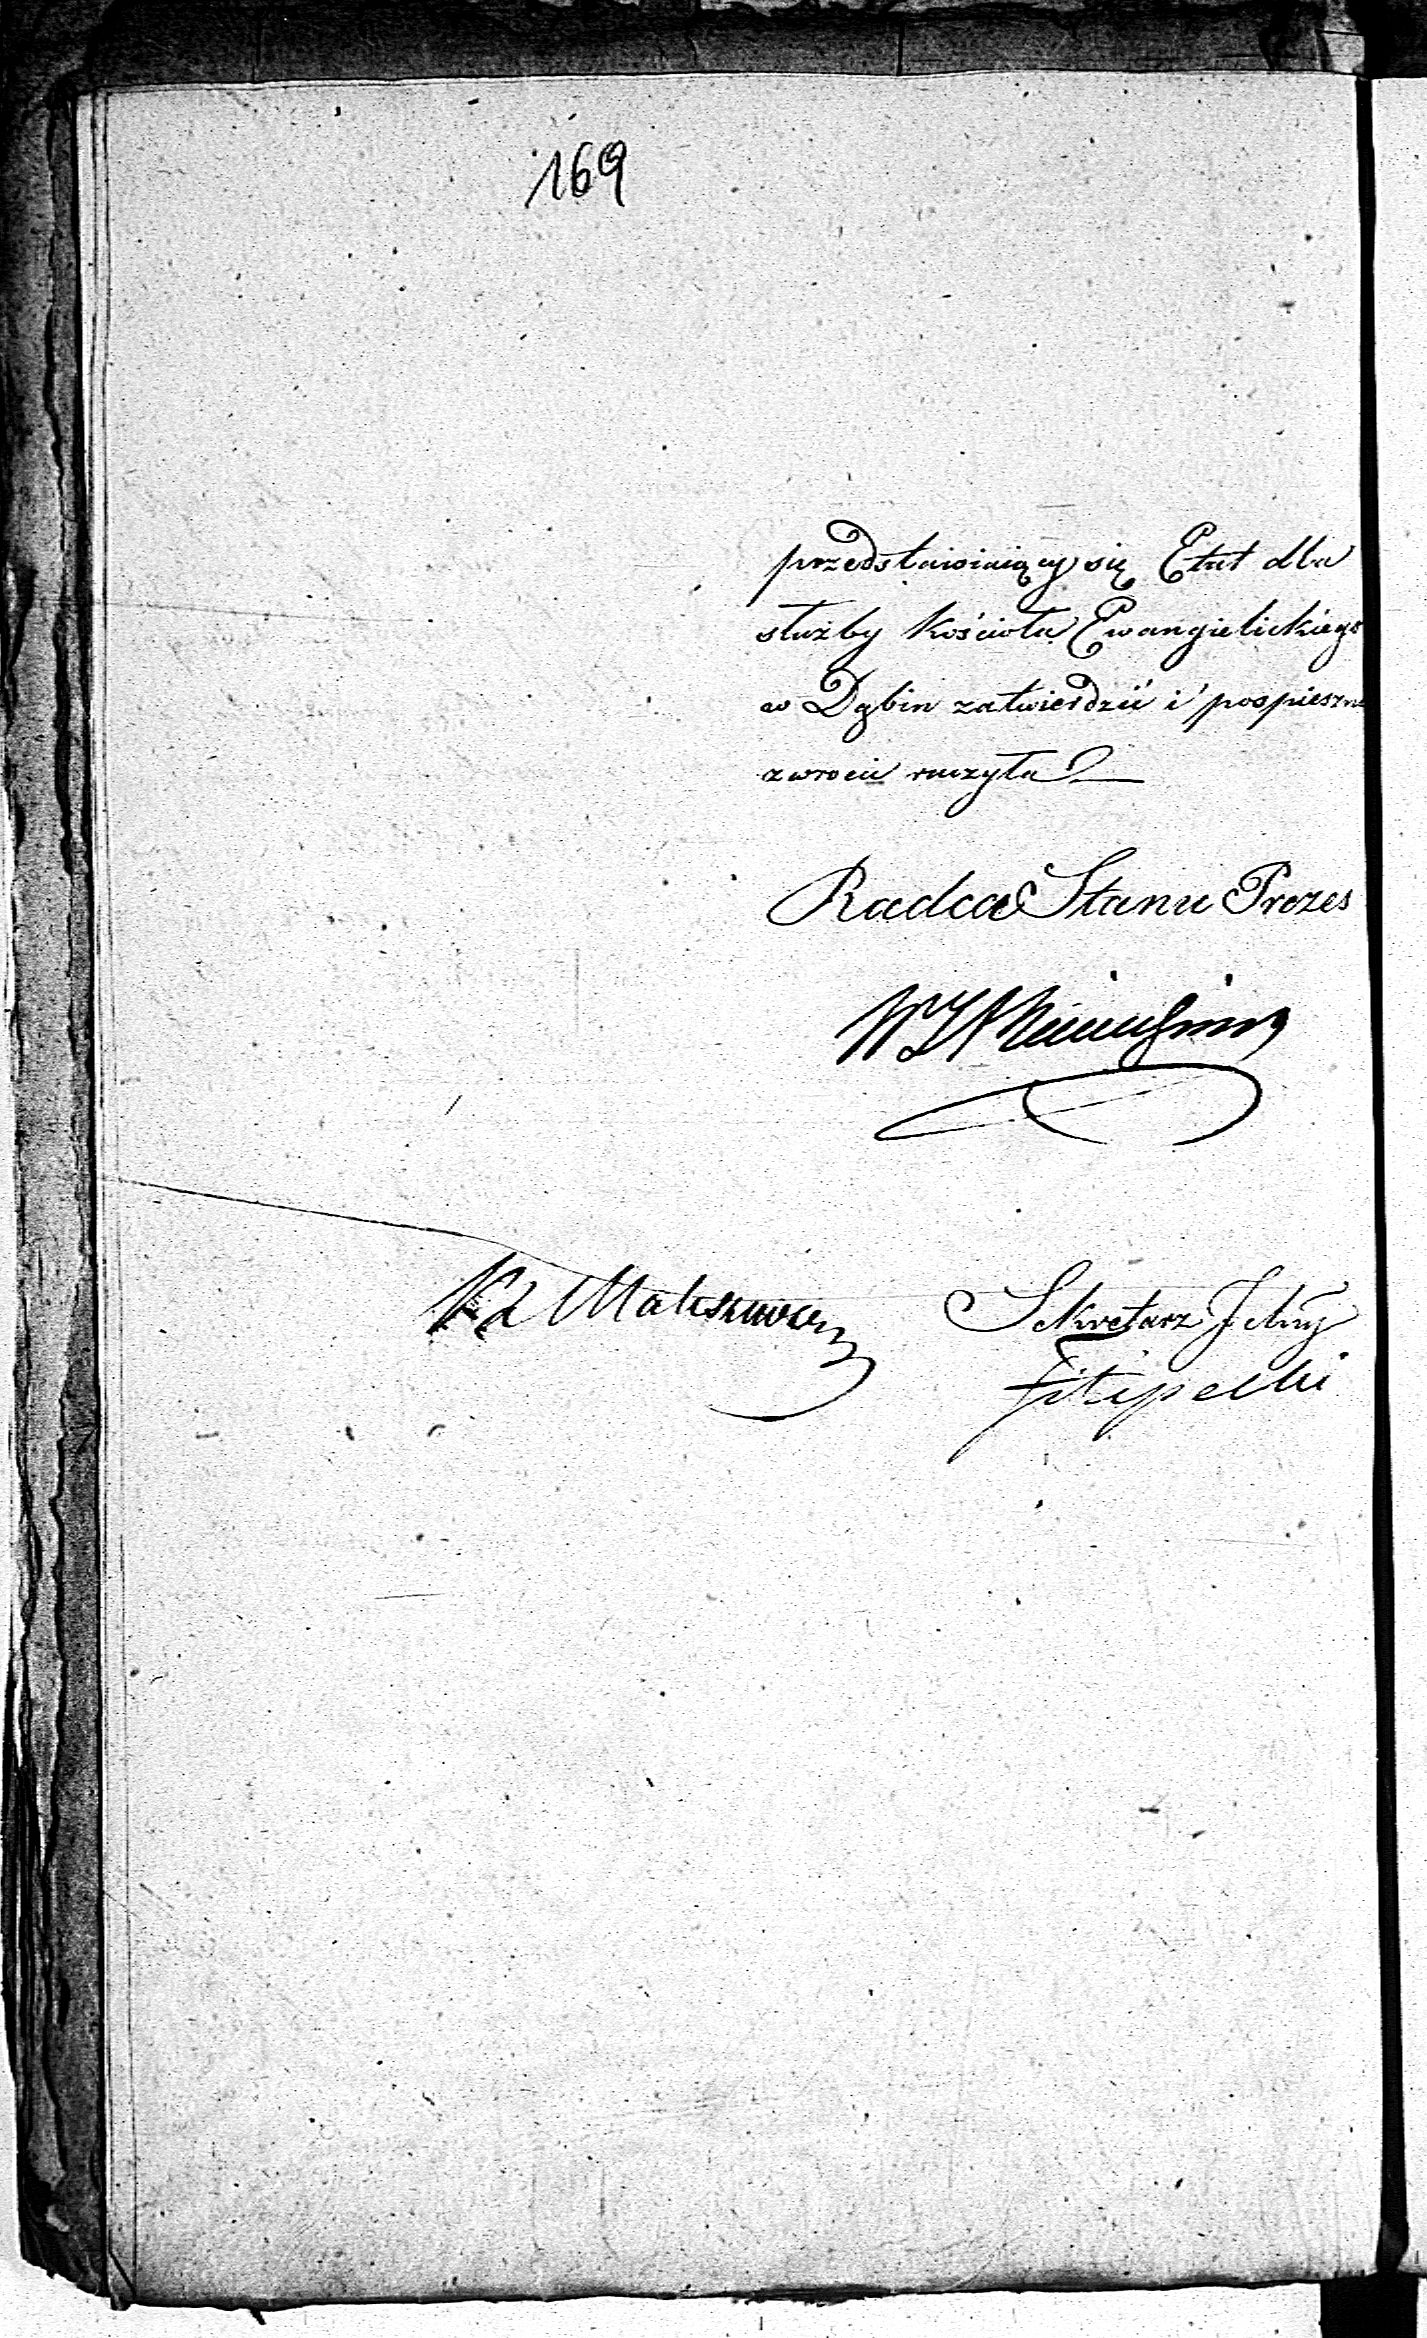 169
przedstawiaiący się Etat dla
służby kościoła Ewangielickiego
w Dąbiu zatwierdzić i pospieszne
zwrócić raczyła
Radca Stanu Prezes
Sekretarz Jelny
Filipecki